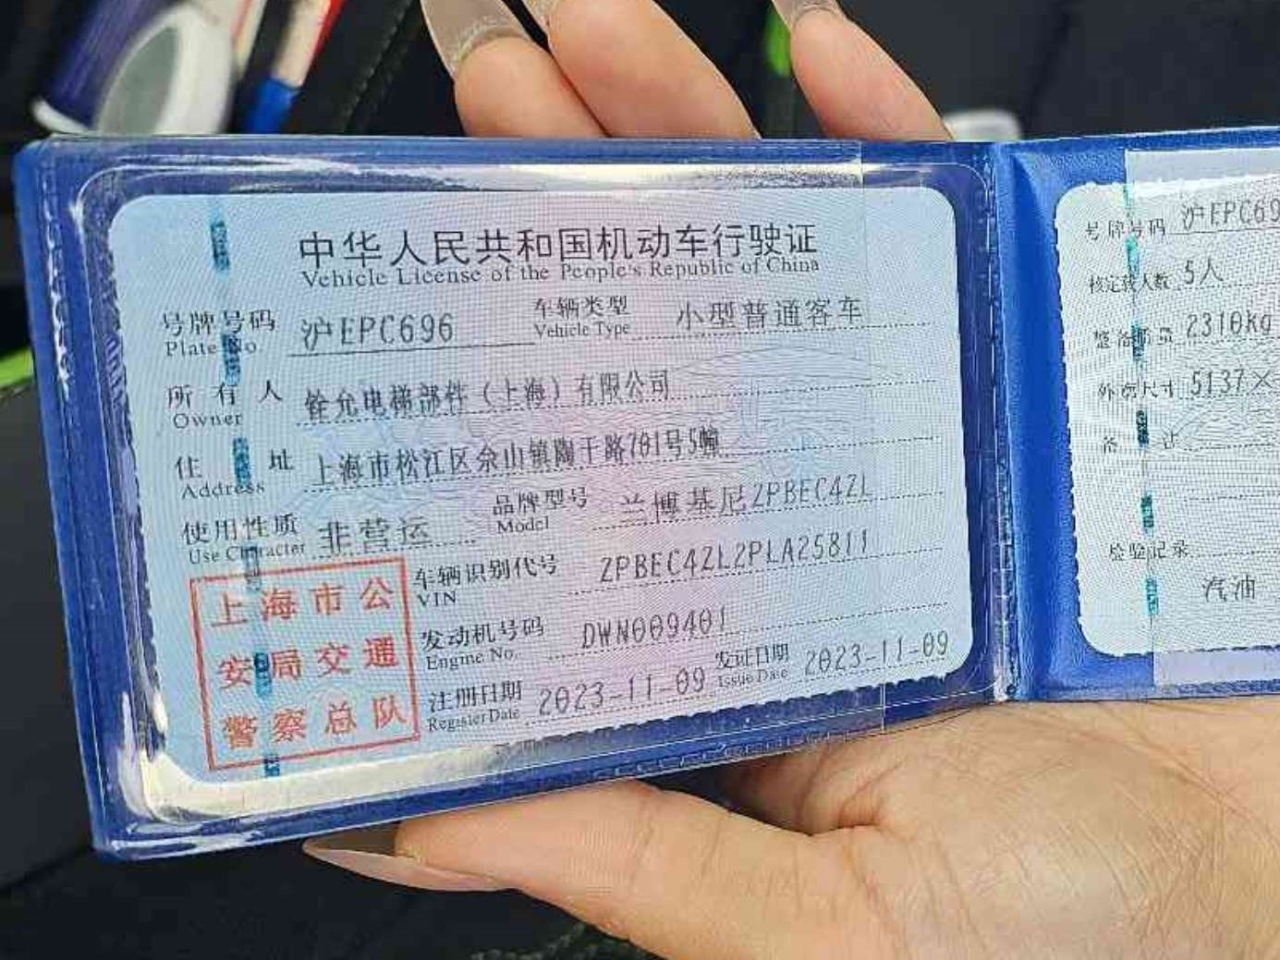 中华人民共和国机动车行驶证
Vehicle License of the People's Republic of China
号牌号码 沪EPC696 车辆类型 小型普通客车
Plate No. Vehicle Type
所有人 铨允电梯部件（上海）有限公司
Owner
住址 上海市松江区佘山镇陶干路701号5幢
Address
使用性质 非营运 品牌型号 兰博基尼ZPBEC4ZL
Use Character Model
车辆识别代号 ZPBEC4ZL2PLA25811
VIN
发动机号码 DWN009401
Engine No.
注册日期 2023-11-09 发证日期 2023-11-09
Register Date Issue Date
上海市公
安局交通
警察总队
号牌号码 沪EPC69
核定载人数 5人
整备质量 2310kg
外廓尺寸 5137×
备注
检验记录
汽油